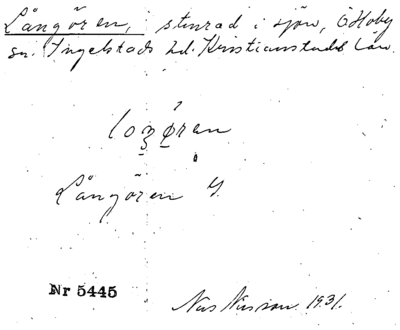 Långören, stenrad i sjön, Ö. Hoby
sn. Ingelstads hd. Kristianstads län.
Långören
Nr 5445
1931.